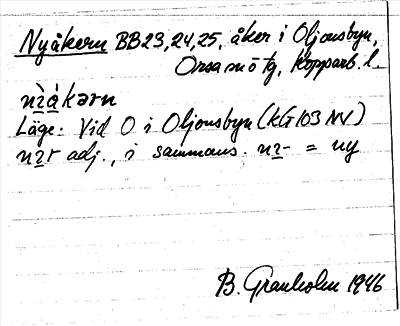 Nyåkern BB23,24,25, åker i Oljonsbyn,
Orsa sn ö tg, Kopparb. l.
Läge: Vid O i Oljonsbyn (KG 103 NV)
adj., i sammans. = ny
B. Granholm 1946